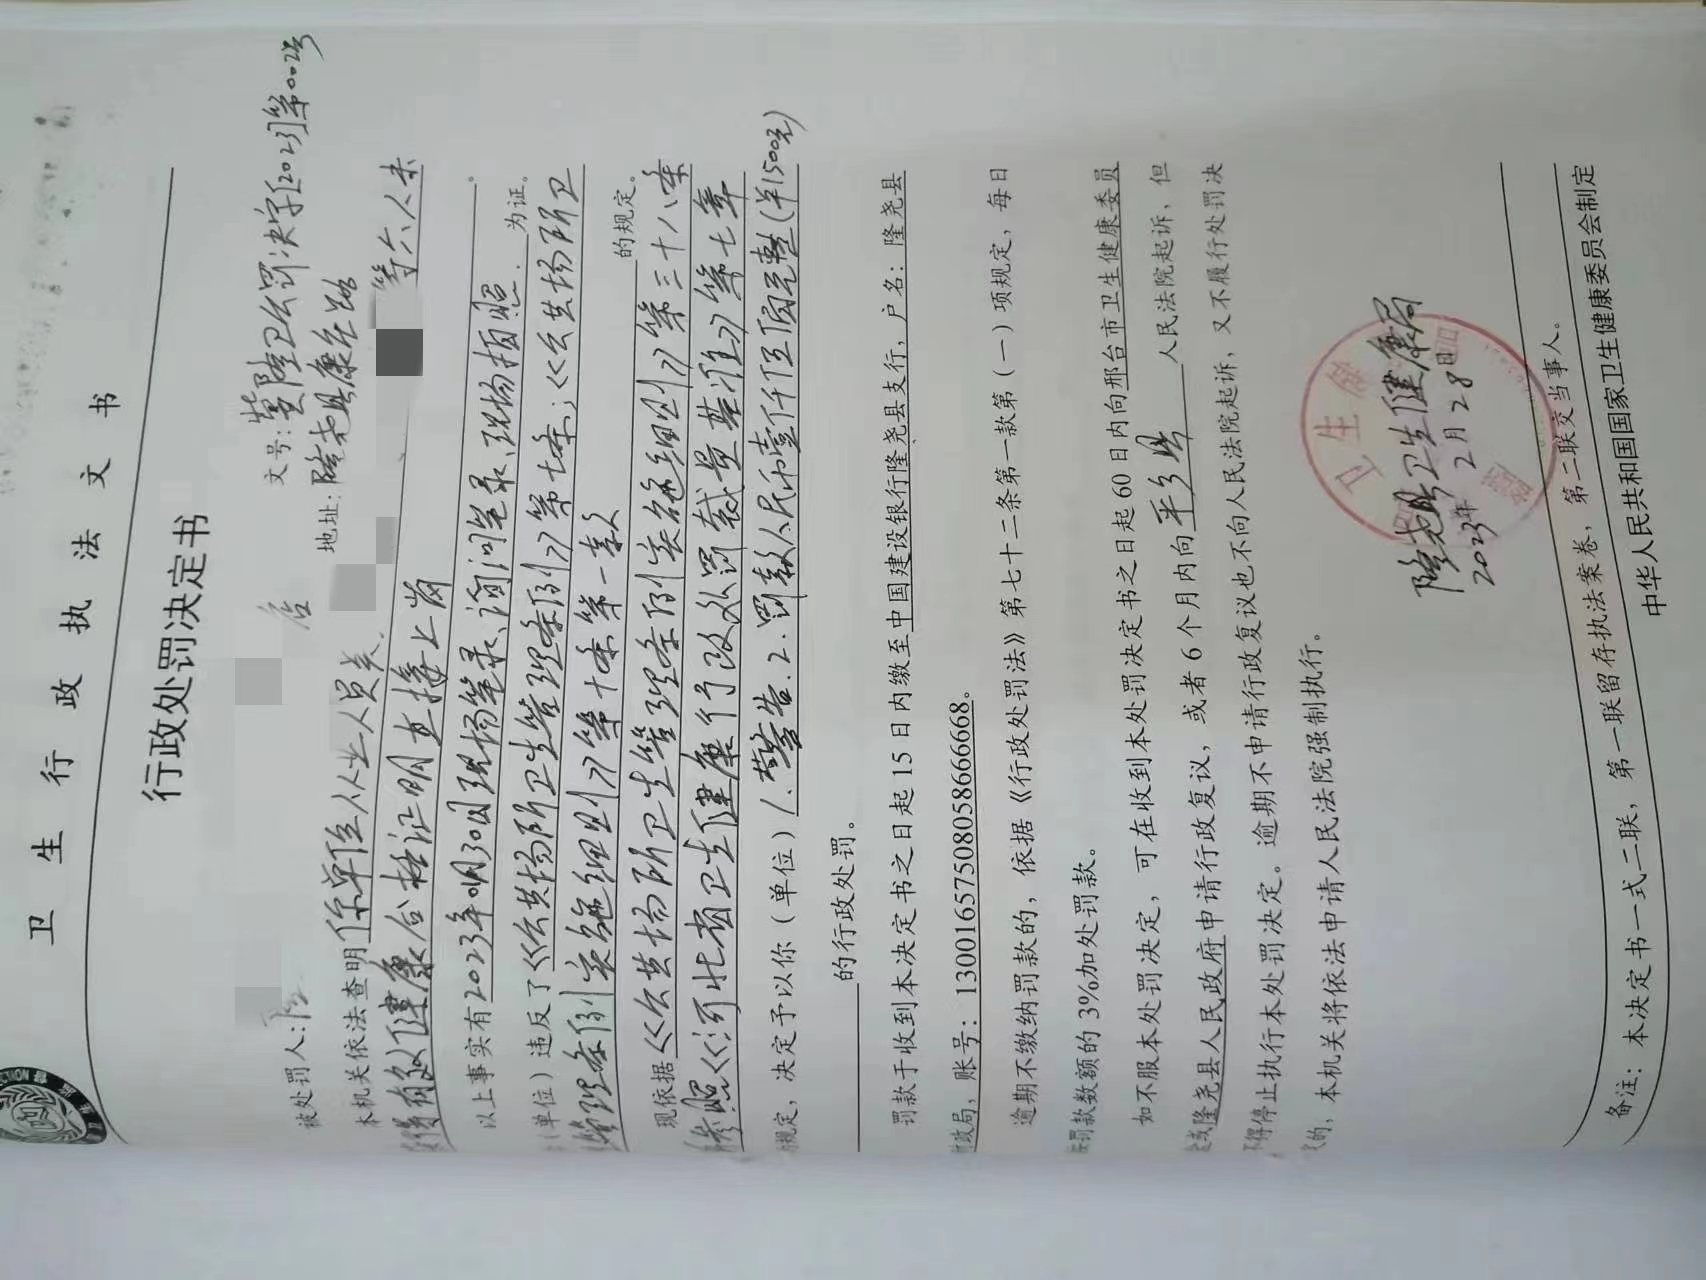 卫生行政执法文书
行政处罚决定书
文号:冀隆卫公罚决字[2023]第002号
被处罚人: 店 地址:隆尧县康庄路
本机关依法查明你单位从业人员关 等六人未
获得有效健康合格证明直接上岗 。
以上事实有2023年 月30日现场笔录、询问笔录、现场拍照. 为证。
(单位)违反了《公共场所卫生管理条例》第七条;《公共场所卫
生管理条例实施细则》第十条第一款 的规定。
现依据《公共场所卫生管理条例实施细则》第三十八条
参照《河北省卫生健康行政处罚裁量基准》第七章
规定,决定予以你(单位)1.警告.2.罚款人民币壹仟伍佰元整(¥1500元)
的行政处罚。
罚款于收到本决定书之日起15日内缴至中国建设银行隆尧县支行,户名:隆尧县
财政局,账号:13001657508058666668。
逾期不缴纳罚款的,依据《行政处罚法》第七十二条第一款第(一)项规定,每日
按罚款数额的3%加处罚款。
如不服本处罚决定,可在收到本处罚决定书之日起60日内向邢台市卫生健康委员
会或隆尧县人民政府申请行政复议,或者6个月内向平乡县 人民法院起诉,但
不得停止执行本处罚决定。逾期不申请行政复议也不向人民法院起诉,又不履行处罚决
定的,本机关将依法申请人民法院强制执行。
隆尧县卫生健康局
2023年 2月28日
备注:本决定书一式二联,第一联留存执法案卷,第二联交当事人。
中华人民共和国国家卫生健康委员会制定